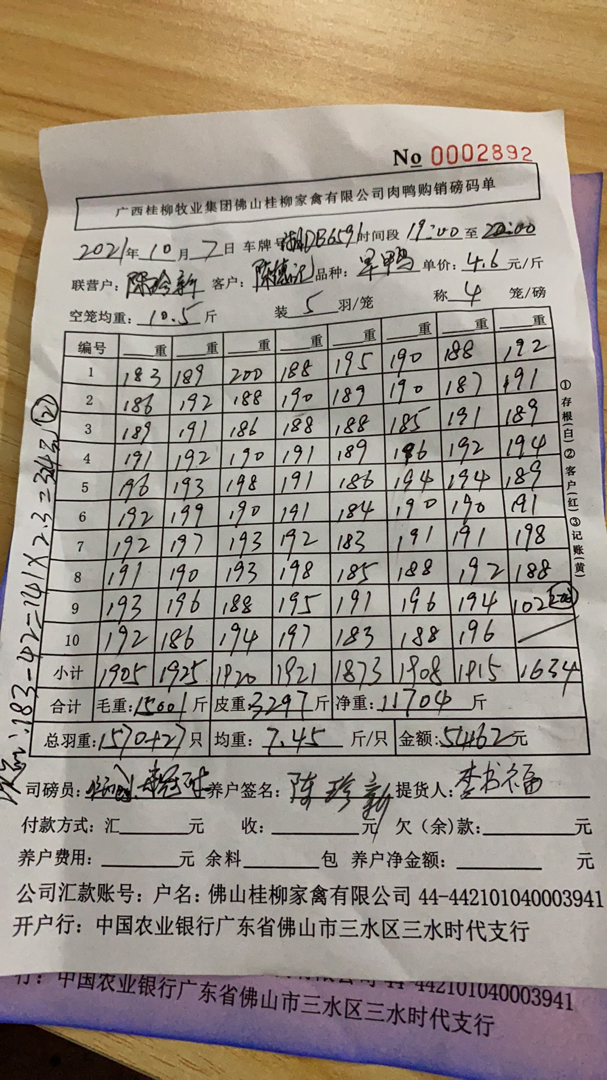 No 0002892
广西桂柳牧业集团佛山桂柳家禽有限公司肉鸭购销磅码单
2021年10月7日 车牌号 DB6591 时间段 19:00 至 22:00
联营户: 陈珍新 客户: 陈德记 品种: 旱鸭 单价: 4.6 元/斤
空笼均重: 10.5 斤 装 5 羽/笼 称 4 笼/磅
编号 重 重 重 重 重 重 重 重
1 183 189 200 188 195 190 188 192
2 186 192 188 190 189 190 187 191
3 189 191 186 188 188 185 191 189
4 191 192 190 191 189 186 192 194
5 196 193 198 191 186 194 194 189
6 192 199 190 191 184 190 190 191
7 192 197 193 192 183 191 191 198
8 191 190 193 198 185 188 192 188
9 193 196 188 195 191 196 194 102
10 192 186 194 197 183 188 196
小计 1905 1925 1920 1921 1873 1908 1915 1634
合计 毛重: 15001 斤 皮重: 3297 斤 净重: 11704 斤
总羽重: 1570+27 只 均重: 7.45 斤/只 金额: 54462 元
司磅员: 养户签名: 陈珍新 提货人: 李书福
付款方式: 汇 元 收: 元 欠(余)款: 元
养户费用: 元 余料 包 养户净金额: 元
公司汇款账号: 户名: 佛山桂柳家禽有限公司 44-442101040003941
开户行: 中国农业银行广东省佛山市三水区三水时代支行
①存根(白)②客户(红)③记账(黄)
183-42=141×2.3=324
44-442101040003941
行: 中国农业银行广东省佛山市三水区三水时代支行